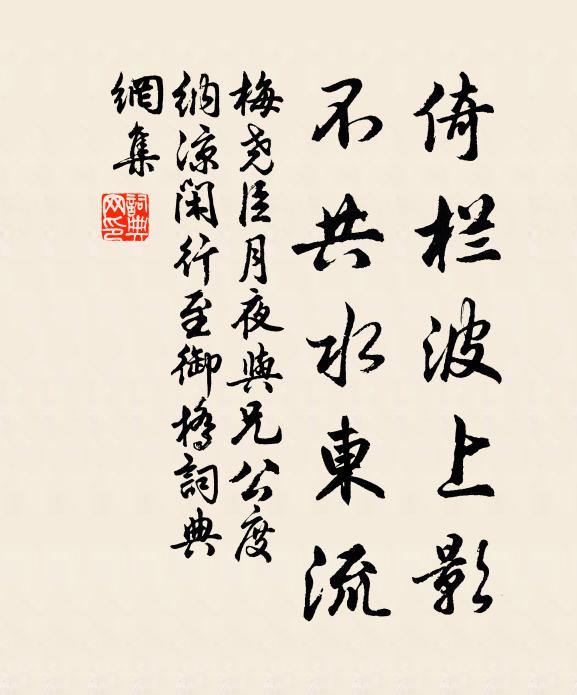 倚栏波上影
不共水東流
梅尧臣月夜與兄公度
納涼閑行至御橋詞典
網集
詞典
网印